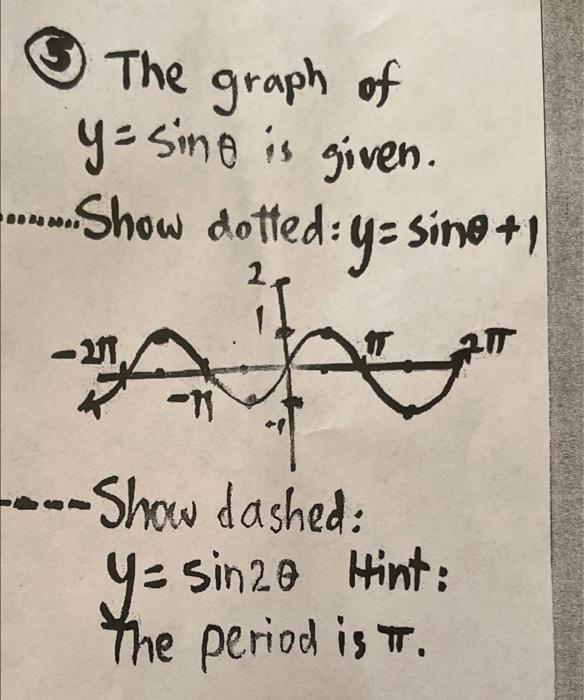 ⑤ The graph of
y = sinθ is given.
........Show dotted: y = sinθ + 1
2
1
-2π π 2π
-π
-1
----Show dashed:
y = sin2θ Hint:
The period is π.